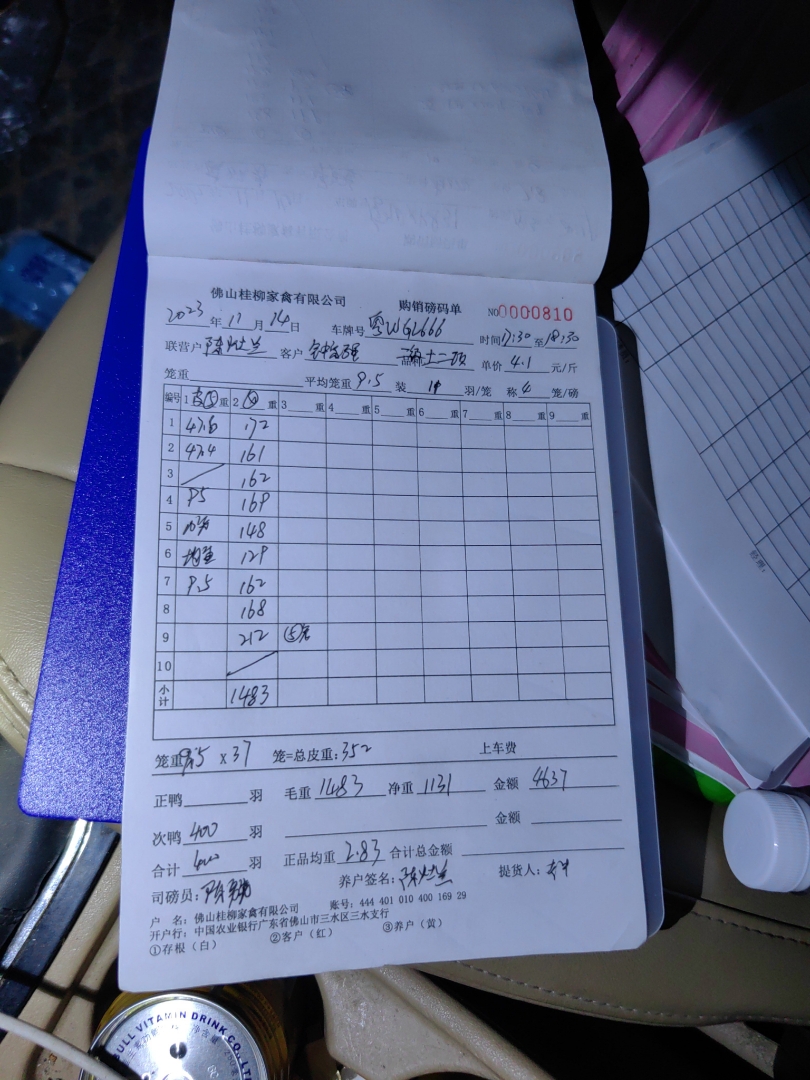 佛山桂柳家禽有限公司 购销磅码单 NO0000810
2023年11月14日 车牌号粤WGL666 时间17:30至18:30
联营户 客户 单价4.1元/斤
笼重 平均笼重9.5 装 羽/笼 称4笼/磅
编号 1 重 2 重 3 重 4 重 5 重 6 重 7 重 8 重 9 重
1 47.6 172
2 47.4 161
3 162
4 9.5 169
5 148
6 129
7 9.5 162
8 168
9 212
10
小计 1483
笼重9.5 x37 笼=总皮重:352 上车费
正鸭 羽 毛重1483 净重1131 金额4637
次鸭400羽 金额
合计400羽 正品均重2.83 合计总金额
司磅员: 养户签名: 提货人:
户 名：佛山桂柳家禽有限公司 账号：444 401 010 400 169 29
开户行：中国农业银行广东省佛山市三水区三水支行
①存根（白） ②客户（红） ③养户（黄）
BULL VITAMIN DRINK CO.,LT